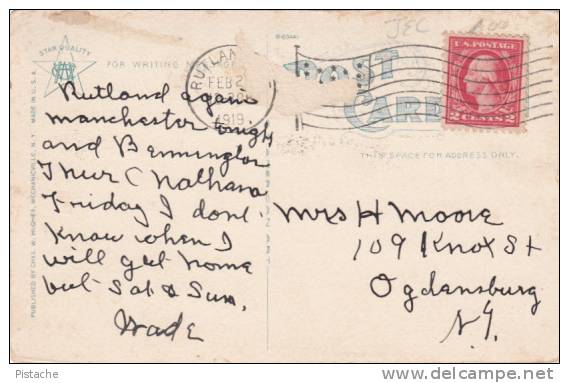 STAR QUALITY
R-63441
JEC
FOR WRITING
POST
CARD
RUTLAN
FEB 2
1919
U.S. POSTAGE
2 CENTS 2
THIS SPACE FOR ADDRESS ONLY.
MADE IN U.S.A.
PUBLISHED BY CHAS. W. HUGHES, MECHANICVILLE, N.Y.
Rutland again
Manchester tonight
and Bennington
Thur C Nathana
Friday I dont
Know when I
will get home
but Sat & Sun.
Wade
Mrs H Moore
109 Knox St
Ogdensburg
N.Y.
Pistache
www.delcampe.net